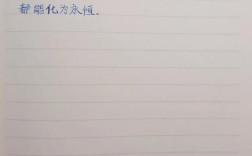 都能化为永恒.